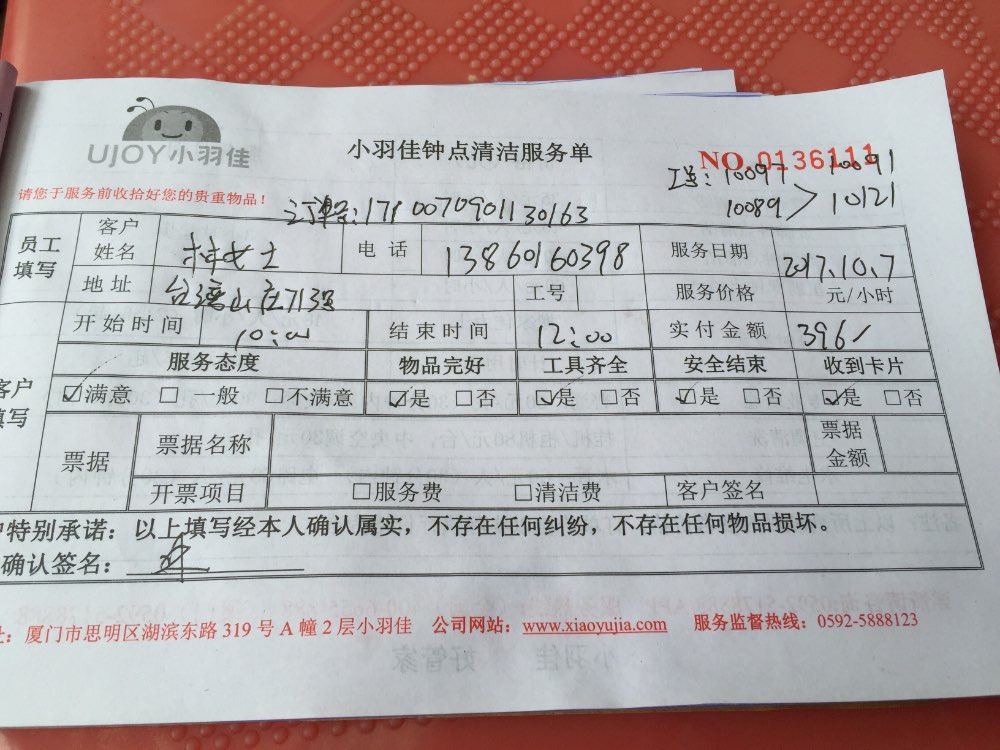 UJOY小羽佳
小羽佳钟点清洁服务单
NO.0136111
请您于服务前收拾好您的贵重物品!
工号: 10097 10091
10089 > 10121
员工填写
客户姓名 林女士 电话 13860160398 服务日期 2017.10.7
地址 台湾山庄713号 工号 服务价格 元/小时
开始时间 10:00 结束时间 12:00 实付金额 396
客户填写
服务态度 物品完好 工具齐全 安全结束 收到卡片
☑满意 □一般 □不满意 ☑是 □否 ☑是 □否 ☑是 □否 ☑是 □否
票据 票据名称 票据金额
开票项目 □服务费 □清洁费 客户签名
户特别承诺:以上填写经本人确认属实,不存在任何纠纷,不存在任何物品损坏。
确认签名:
址:厦门市思明区湖滨东路 319 号 A 幢 2 层小羽佳 公司网站:www.xiaoyujia.com 服务监督热线:0592-5888123